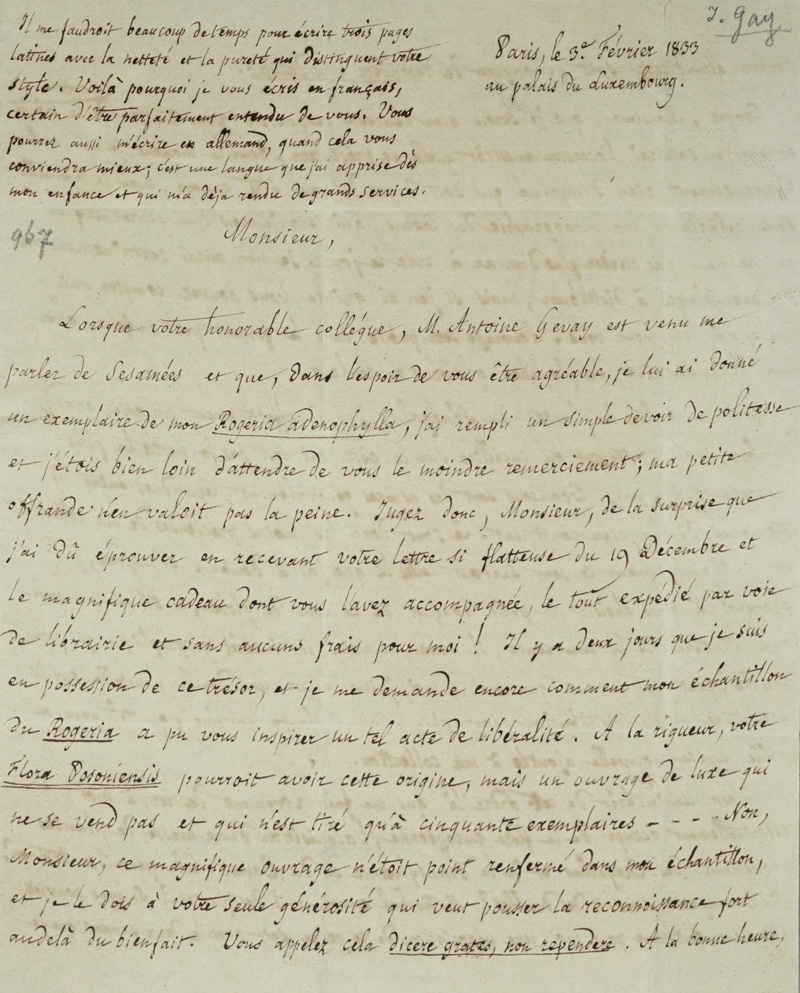 Il me faudroit beaucoup de temps pour écrire trois pages
latines avec la netteté et la pureté qui distinguent votre
style. Voilà pourquoi je vous écris en français,
certain d'être parfaitement entendu de vous. Vous
pourrez aussi m'écrire en allemand, quand cela vous
conviendra mieux; c'est une langue que j'ai apprise dès
mon enfance et qui m'a déja rendu de grands services.
J. Gay
Paris, le 3e. Février 1833
au palais du Luxembourg.
967
Monsieur,
Lorsque votre honorable collégue, M. Antoine Gevay est venu me
parler de Sesamées et que, dans l'espoir de vous être agréable, je lui ai donné
un exemplaire de mon Rogeria adenophylla, j'ai rempli un simple devoir de politesse
et j'étois bien loin d'attendre de vous le moindre remerciement; ma petite
offrande n'en valoit pas la peine. Jugez donc, Monsieur, de la surprise que
j'ai dû éprouver en recevant votre lettre si flatteuse du 19 Décembre et
le magnifique cadeau dont vous l'avez accompagnée, le tout expédié par voie
de librairie et sans aucuns frais pour moi! Il y a deux jours que je suis
en possession de ce trésor, et je me demande encore comment mon échantillon
du Rogeria a pu vous inspirer un tel acte de libéralité. A la rigueur, votre
Flora Posoniensis pourroit avoir cette origine, mais un ouvrage de luxe qui
ne se vend pas et qui n'est tiré qu'à cinquante exemplaires - - - - Non,
Monsieur, ce magnifique ouvrage n'étoit point renfermé dans mon échantillon,
et je le dois à votre seule générosité qui veut pousser la reconnoissance fort
audelà du bienfait. Vous appelez cela dicere grates, non rependere. A la bonne heure,